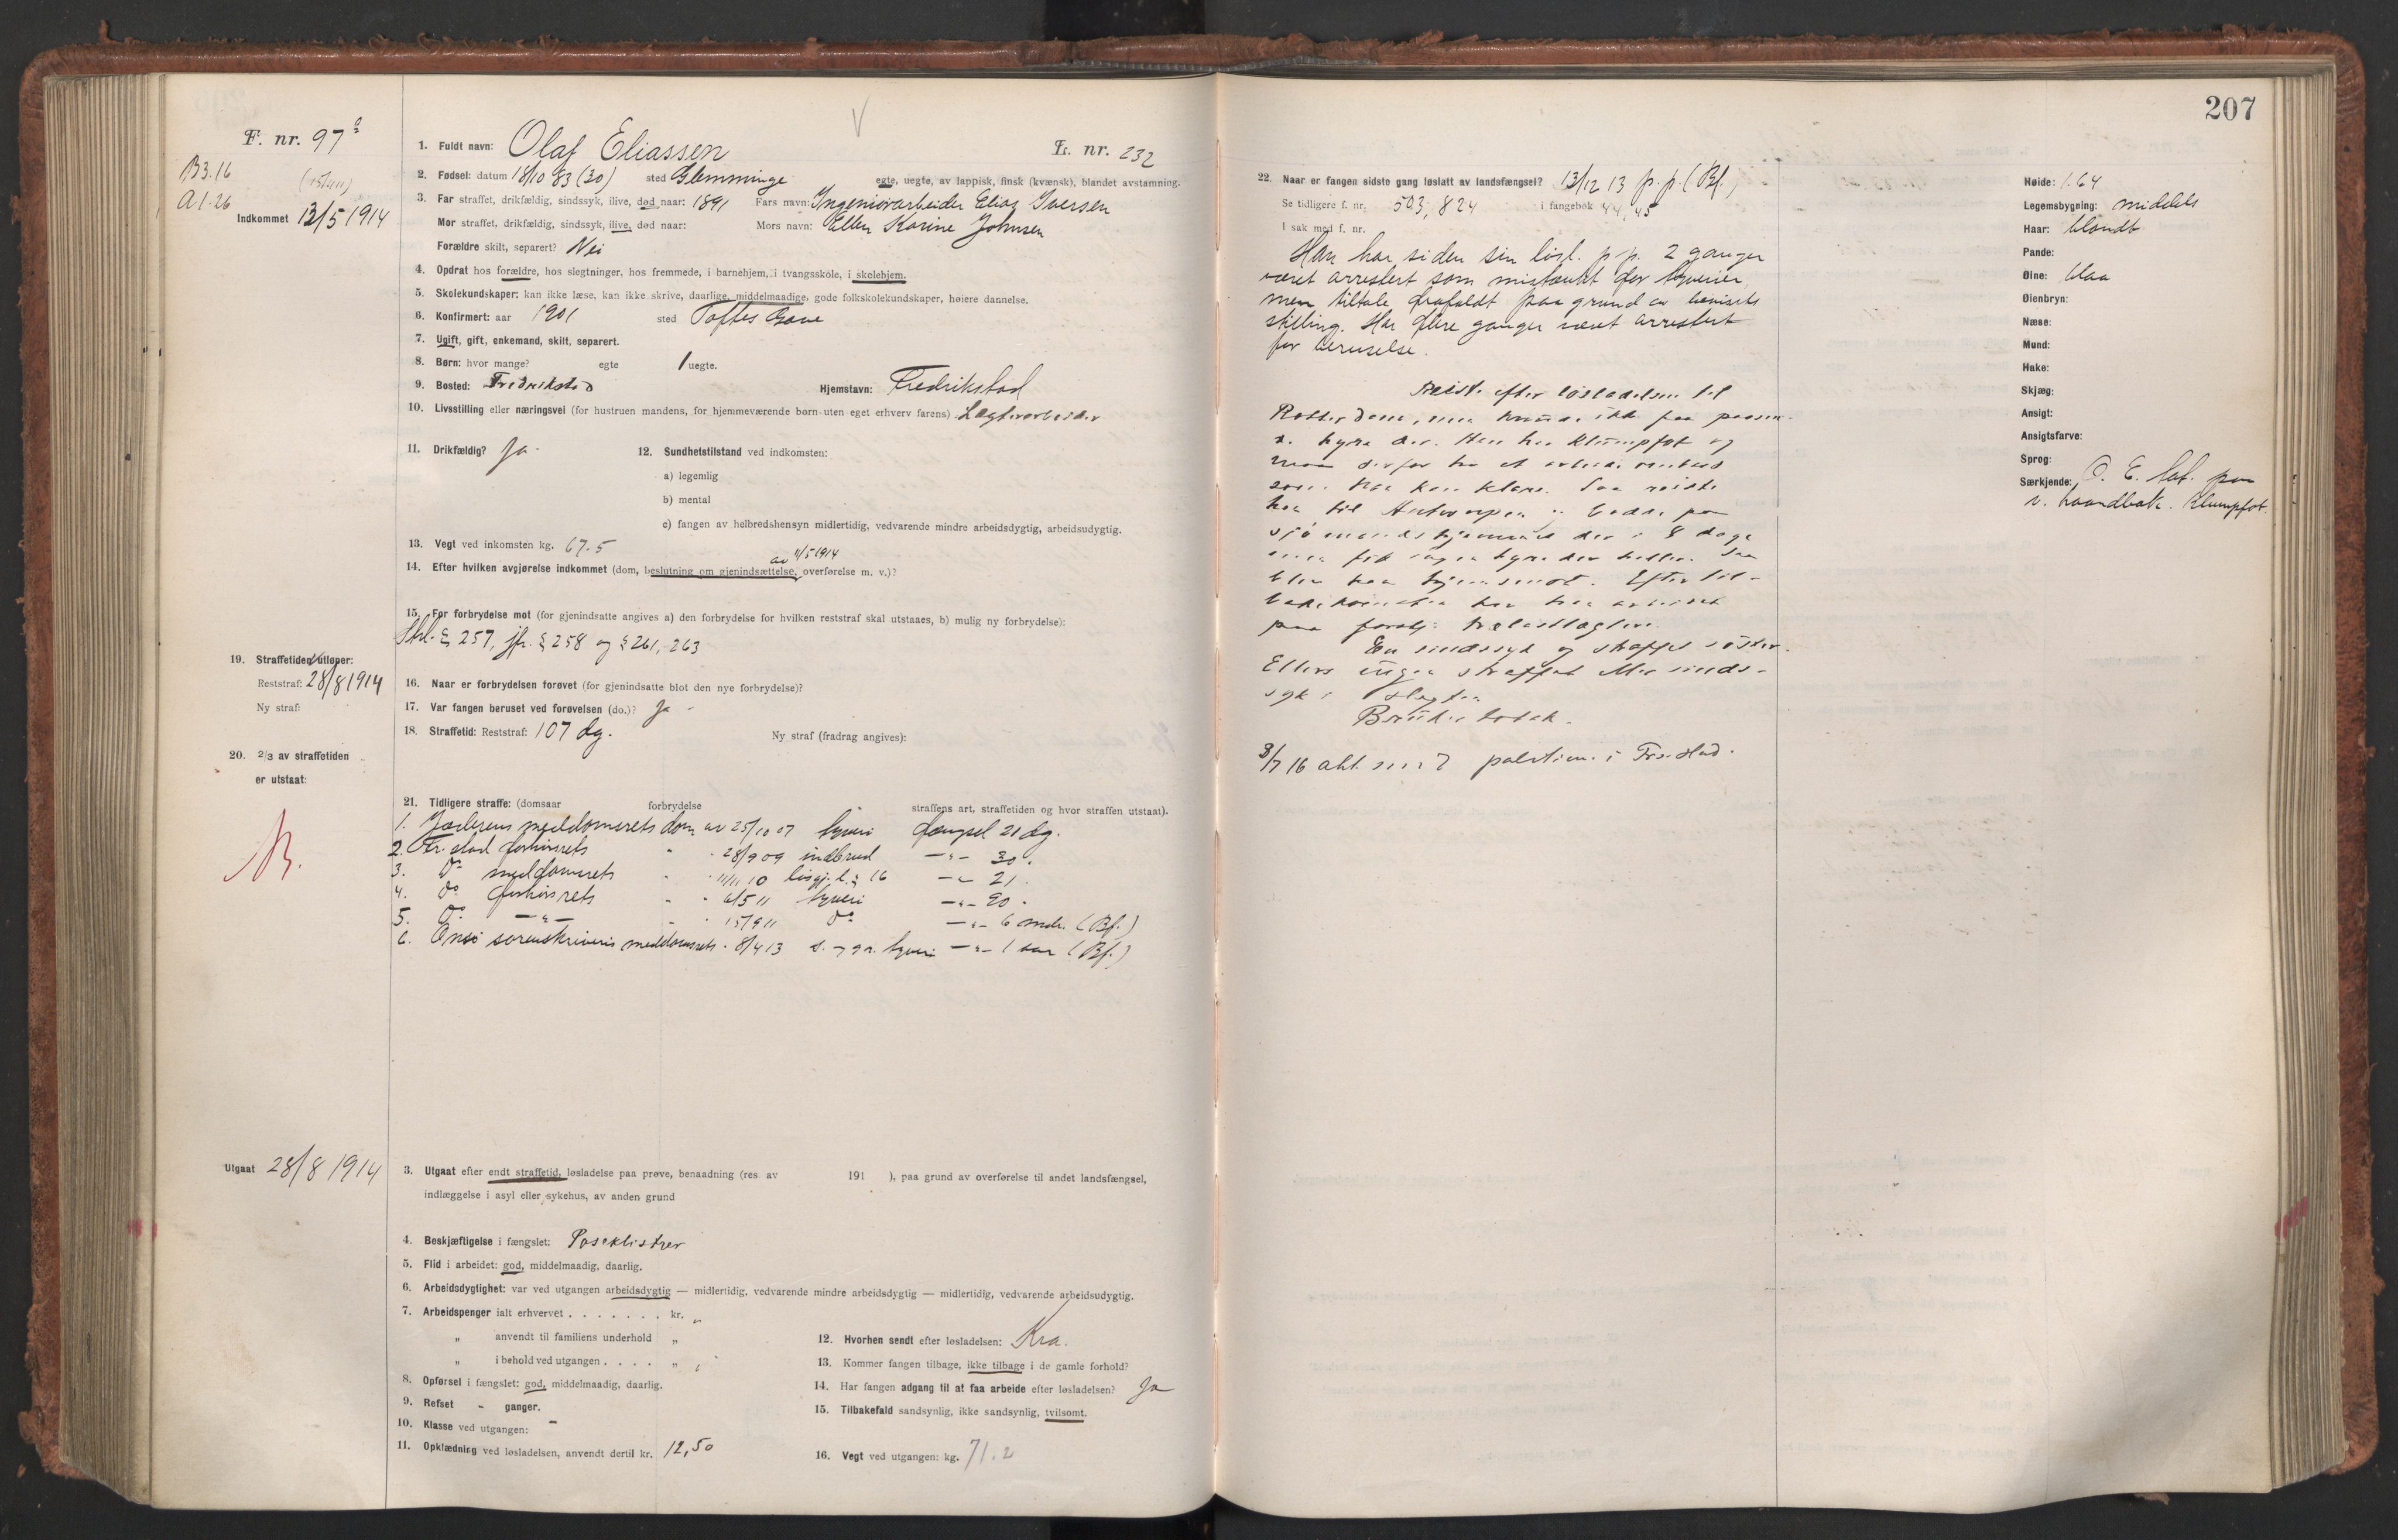 207
F. nr. 97
B3.16
A1.26
(15/411)
Indkommet 13/5 1914
V
1. Fuldt navn: Olaf Eliassen L. nr. 232
2. Fødsel: datum 18/10 83 (30) sted Glemminge egte, uegte, av lappisk, finsk (kvænsk), blandet avstamning.
3. Far straffet, drikfældig, sindssyk, ilive, død naar: 1891 Fars navn: Ingeniørarbeider Elias Iversen
Mor straffet, drikfældig, sindssyk, ilive, død naar: Mors navn: Ellen Karine Johnsen
Forældre skilt, separert? Nei
4. Opdrat hos forældre, hos slegtninger, hos fremmede, i barnehjem, i tvangsskole, i skolehjem.
5. Skolekundskaper: kan ikke læse, kan ikke skrive, daarlige, middelmaadige, gode folkskolekundskaper, høiere dannelse.
6. Konfirmert: aar 1901 sted Toftes Gave
7. Ugift, gift, enkemand, skilt, separert.
8. Børn: hvor mange? egte 1 uegte.
9. Bosted: Fredrikstad Hjemstavn: Fredrikstad
10. Livsstilling eller næringsvei (for hustruen mandens, for hjemmeværende børn uten eget erhverv farens) Lægterarbeider
11. Drikfældig? Ja 12. Sundhetstilstand ved indkomsten:
a) legemlig
b) mental
c) fangen av helbredshensyn midlertidig, vedvarende mindre arbeidsdygtig, arbeidsudygtig.
13. Vegt ved inkomsten kg. 67.5
av 11/5 1914
14. Efter hvilken avgjørelse indkommet (dom, beslutning om gjenindsættelse, overførelse m. v.)?
15. For forbrydelse mot (for gjenindsatte angives a) den forbrydelse for hvilken reststraf skal utstaaes, b) mulig ny forbrydelse):
Strl. § 257, jfr. § 258 og § 261, 263
19. Straffetiden utløper:
Reststraf: 28/8 1914
Ny straf:
16. Naar er forbrydelsen forøvet (for gjenindsatte blot den nye forbrydelse)?
17. Var fangen beruset ved forøvelsen (do.)? Ja
18. Straffetid: Reststraf: 107 dg. Ny straf (fradrag angives):
20. 2/3 av straffetiden
er utstaat:
21. Tidligere straffe: (domsaar forbrydelse straffens art, straffetiden og hvor straffen utstaat).
1. Jæderens meddomsrets dom av 25/10 07 tyveri fængsel 21 dg.
2. Fr.stad forhørsrets " " 28/9 09 indbrud —"— 30.
3. Do meddomsrets " " 11/11 10 løsgj. l. § 16 —"— 21.
4. do forhørsrets " " 6/5 11 tyveri —"— 90.
5. Do —"— " " 15/9 11 do —"— 6 mdr. (Bf.)
6. Onsø sorenskriveris meddomsrets " 8/4 13 s. og gr. tyveri —"— 1 aar (Bf.)
Utgaat 28/8 1914
3. Utgaat efter endt straffetid, løsladelse paa prøve, benaadning (res. av 191 ), paa grund av overførelse til andet landsfængsel,
indlæggelse i asyl eller sykehus, av anden grund
4. Beskjæftigelse i fængslet: Poseklistrer
5. Flid i arbeidet: god, middelmaadig, daarlig.
6. Arbeidsdygtighet: var ved utgangen arbeidsdygtig — midlertidig, vedvarende mindre arbeidsdygtig — midlertidig, vedvarende arbeidsudygtig.
7. Arbeidspenger ialt erhvervet . . . . . . . kr. "
" anvendt til familiens underhold "
" i behold ved utgangen . . . . "
8. Opførsel i fængslet: god, middelmaadig, daarlig.
9. Refset - ganger.
10. Klasse ved utgangen: -
11. Opklædning ved løsladelsen, anvendt dertil kr. 12,50
12. Hvorhen sendt efter løsladelsen: Kra.
13. Kommer fangen tilbage, ikke tilbage i de gamle forhold?
14. Har fangen adgang til at faa arbeide efter løsladelsen? Ja
15. Tilbakefald sandsynlig, ikke sandsynlig, tvilsomt.
16. Vegt ved utgangen: kg. 71.2
22. Naar er fangen sidste gang løslatt av landsfængsel? 13/12 13 p.p. (Bf.)
Se tidligere f. nr. 503, 824 i fangebok 44, 45
I sak med f. nr.
Han har siden sin løsl. p.p. 2 ganger
været arrestert som mistænkt for tyverier,
men tiltale frafaldt paa grund av bevisets
stilling. Har flere ganger været arrestert
for beruselse.
Reiste efter løsladelsen til
Rotterdam, men kunde ikke faa
hyre der. Han har klumpfot og
maa derfor ha et arbeide
som han kan klare. Saa reiste
han til Antwerpen og bodde paa
sjømandshjemmet der i 8 dage
men fik ingen hyre der heller. Saa
blev han hjemsendt. Efter til-
bakekomsten har han arbeidet
paa forskj. trælastlægtere.
En sindssyk og straffet søster.
Ellers ingen straffet eller sinds-
syk i slegten
Bruker tobak.
8/7 16 akt. sendt politiet i Fr.stad.
Høide: 1.64
Legemsbygning: middels
Haar: blondt
Pande:
Øine: blaa
Øienbryn:
Næse:
Mund:
Hake:
Skjæg:
Ansigt:
Ansigtsfarve:
Sprog:
Særkjende: O. E. tat. paa
v. haandbak. Klumpfot.